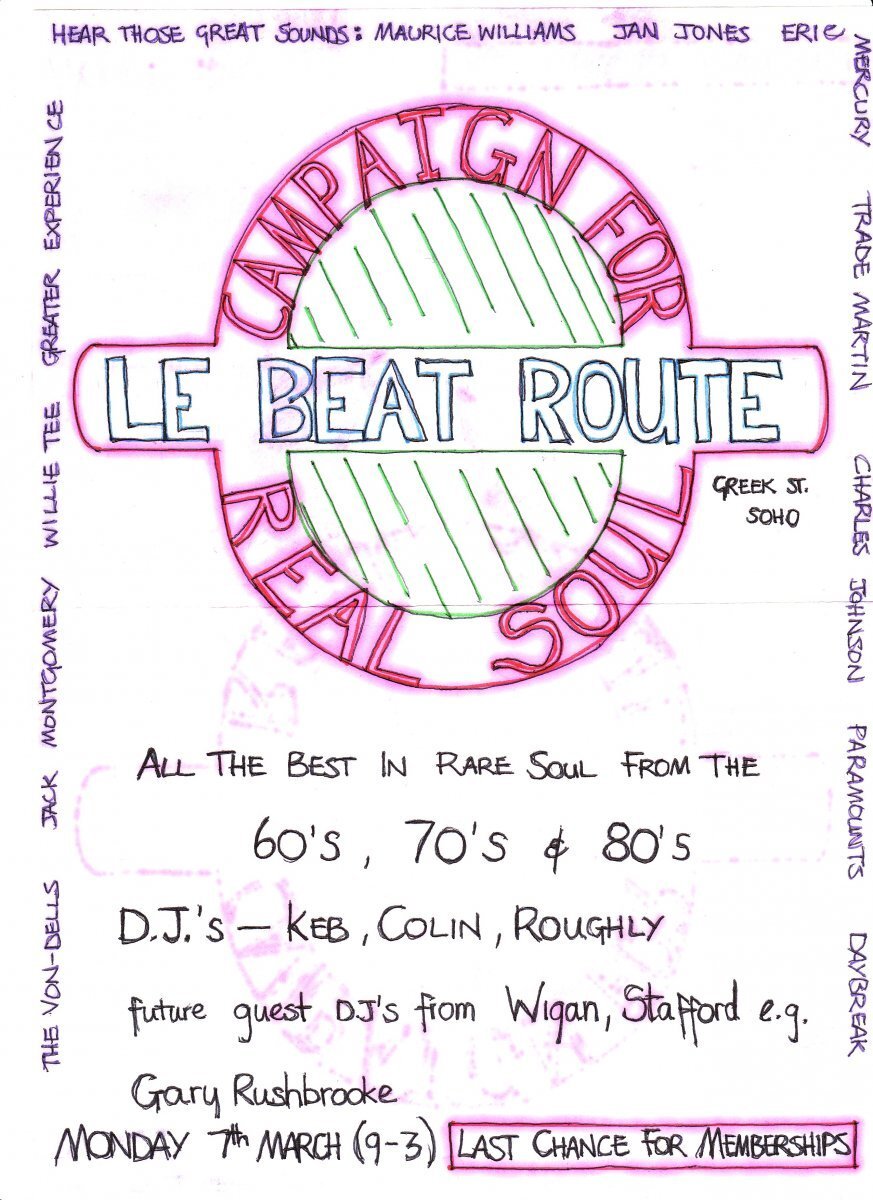 HEAR THOSE GREAT SOUNDS: MAURICE WILLIAMS JAN JONES ERIC
MERCURY TRADE MARTIN CHARLES JOHNSON PARAMOUNTS DAYBREAK
THE VON-DELLS JACK MONTGOMERY WILLIE TEE GREATER EXPERIENCE
CAMPAIGN FOR
LE BEAT ROUTE
REAL SOUL
GREEK ST.
SOHO
ALL THE BEST IN RARE SOUL FROM THE
60'S, 70'S & 80'S
D.J.'s — KEB, COLIN, ROUGHLY
future guest DJ's from Wigan, Stafford e.g.
Gary Rushbrooke
MONDAY 7th MARCH (9-3) LAST CHANCE FOR MEMBERSHIPS